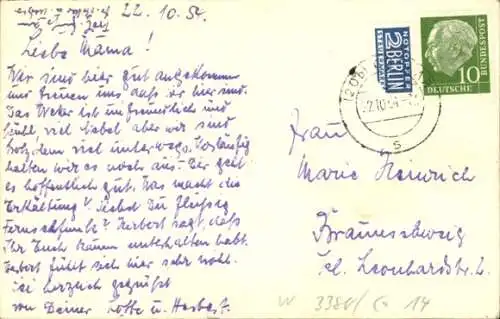 22. 10. 54.
Liebe Mama!
Wir sind hier gut angekommen
und freuen uns, daß wir hier sind.
Das Wetter ist unfreundlich und
kühl, viel Nebel aber wir sind
trotzdem viel unterwegs. Vorläufig
halten wir es noch aus. Dir geht
es hoffentlich gut. Was macht die
Erkältung? Siehst Du fleißig
Fernsehfunk? Herbert sagt, daß
Ihr Euch unterhalten habt.
Herbert fühlt sich hier sehr wohl.
Sei herzlich gegrüßt
von Deiner Lotte u. Herbert.
NOTOPFER
2 BERLIN
STEUERMARKE
DEUTSCHE
BUNDESPOST
10
22.10.54
Frau
Marie Heinrich
Braunschweig
Kl. Leonhardstr. 2
W 3380/ 14